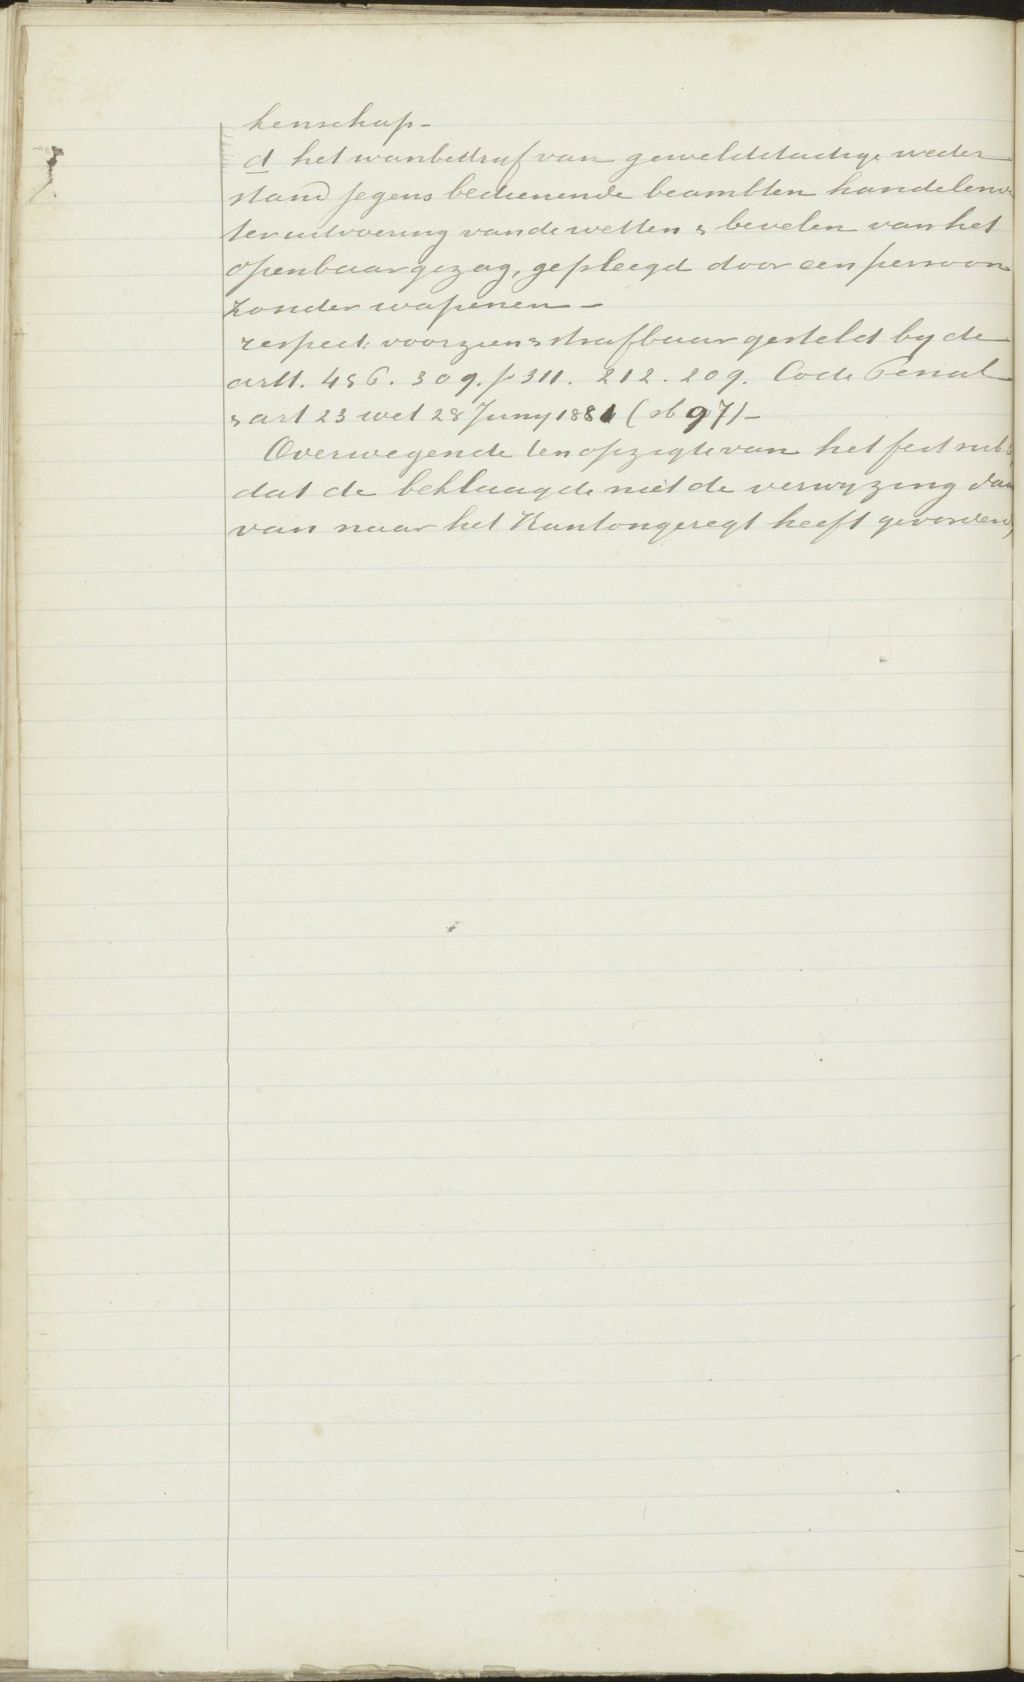 kenschap -
d het wanbedryf van gewelddadige weder
stand jegens bedienende beambten handelende
ter uitvoering van de wetten & bevelen van het
openbaar gezag, gepleegd door een persoon
zonder wapenen -
respect: voorzien & strafbaar gesteld by de
artt. 456. 309. jo 311. 212. 209. Code Penal
& art 23 wet 28 Juny 1881 (sb 97) -
Overwegende ten opzigte van het feit sub
dat de beklaagde niet de verwyzing daar
van naar het Kantongeregt heeft gevorderd,